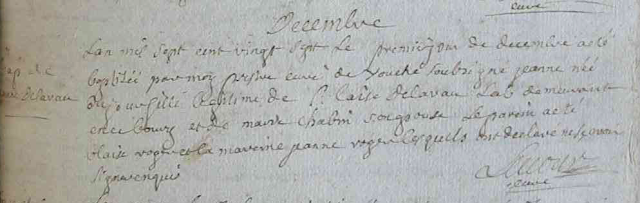 Decembre
Lan mil sept cent vingt sept le premier jour de decembre a esté
bap de
baptisée par moy prestre curé de vouché soubsigné jeanne née
Delavau
du jour fille legitime de Delavau lab demeurant
en ce bourg et de marie chabin son epouse le parein a eté
blaise roger et la mareine jeanne roger lesquels ont declaré ne scavoir
signer enquis
curé